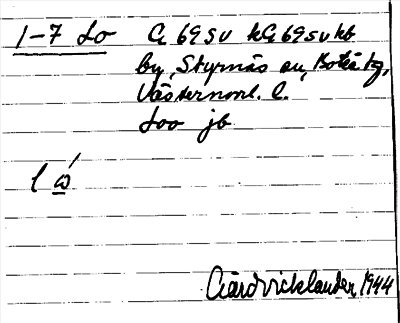 1-7 Lo G 69 SV kG 69 SV kb
by, Styrnäs sn, Boteå tg,
Västernorrl. l.
Loo jb
l ώ
Gärdvicklander, 1944